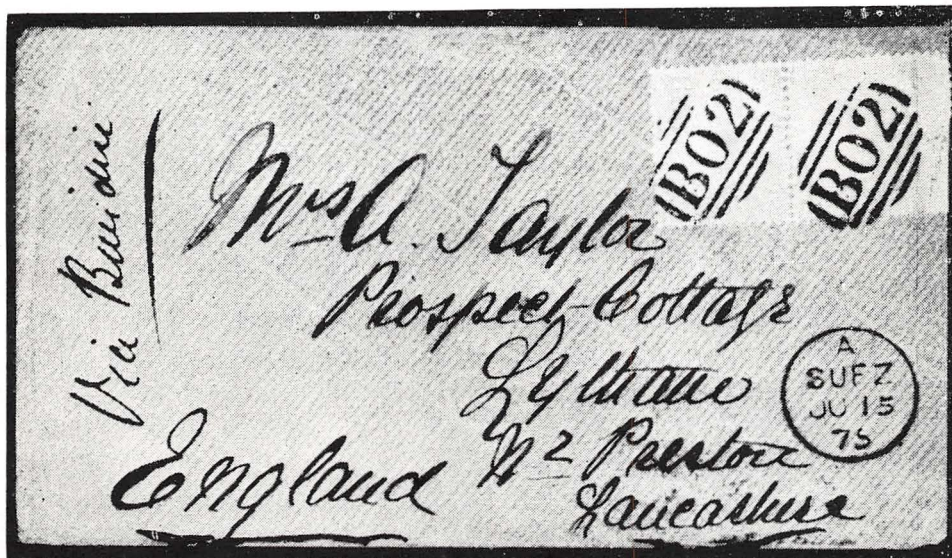 Via Brindisi
B02
B02
Mrs A. Taylor
Prospect Cottage
Lytham
Nr Preston
Lancashire
England
A
SUEZ
JU 15
75